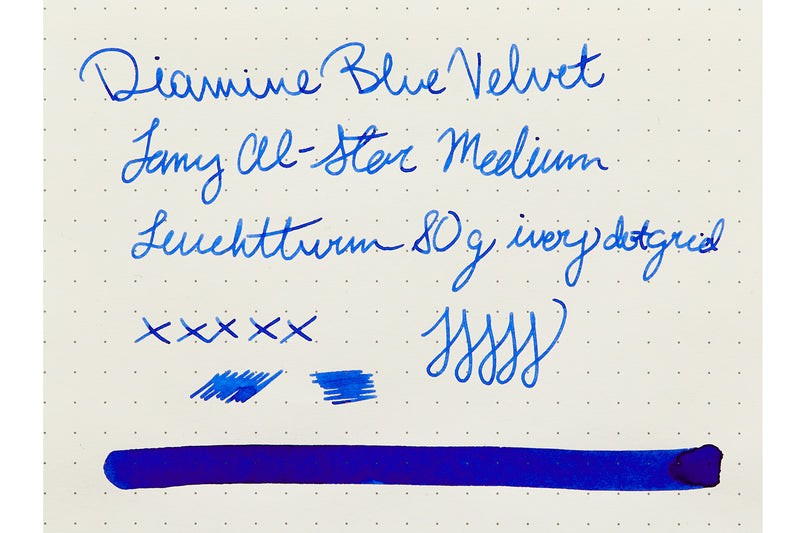 Diamine Blue Velvet
Lamy Al-Star Medium
Leuchtturm 80g ivory dotgrid
xxxxx